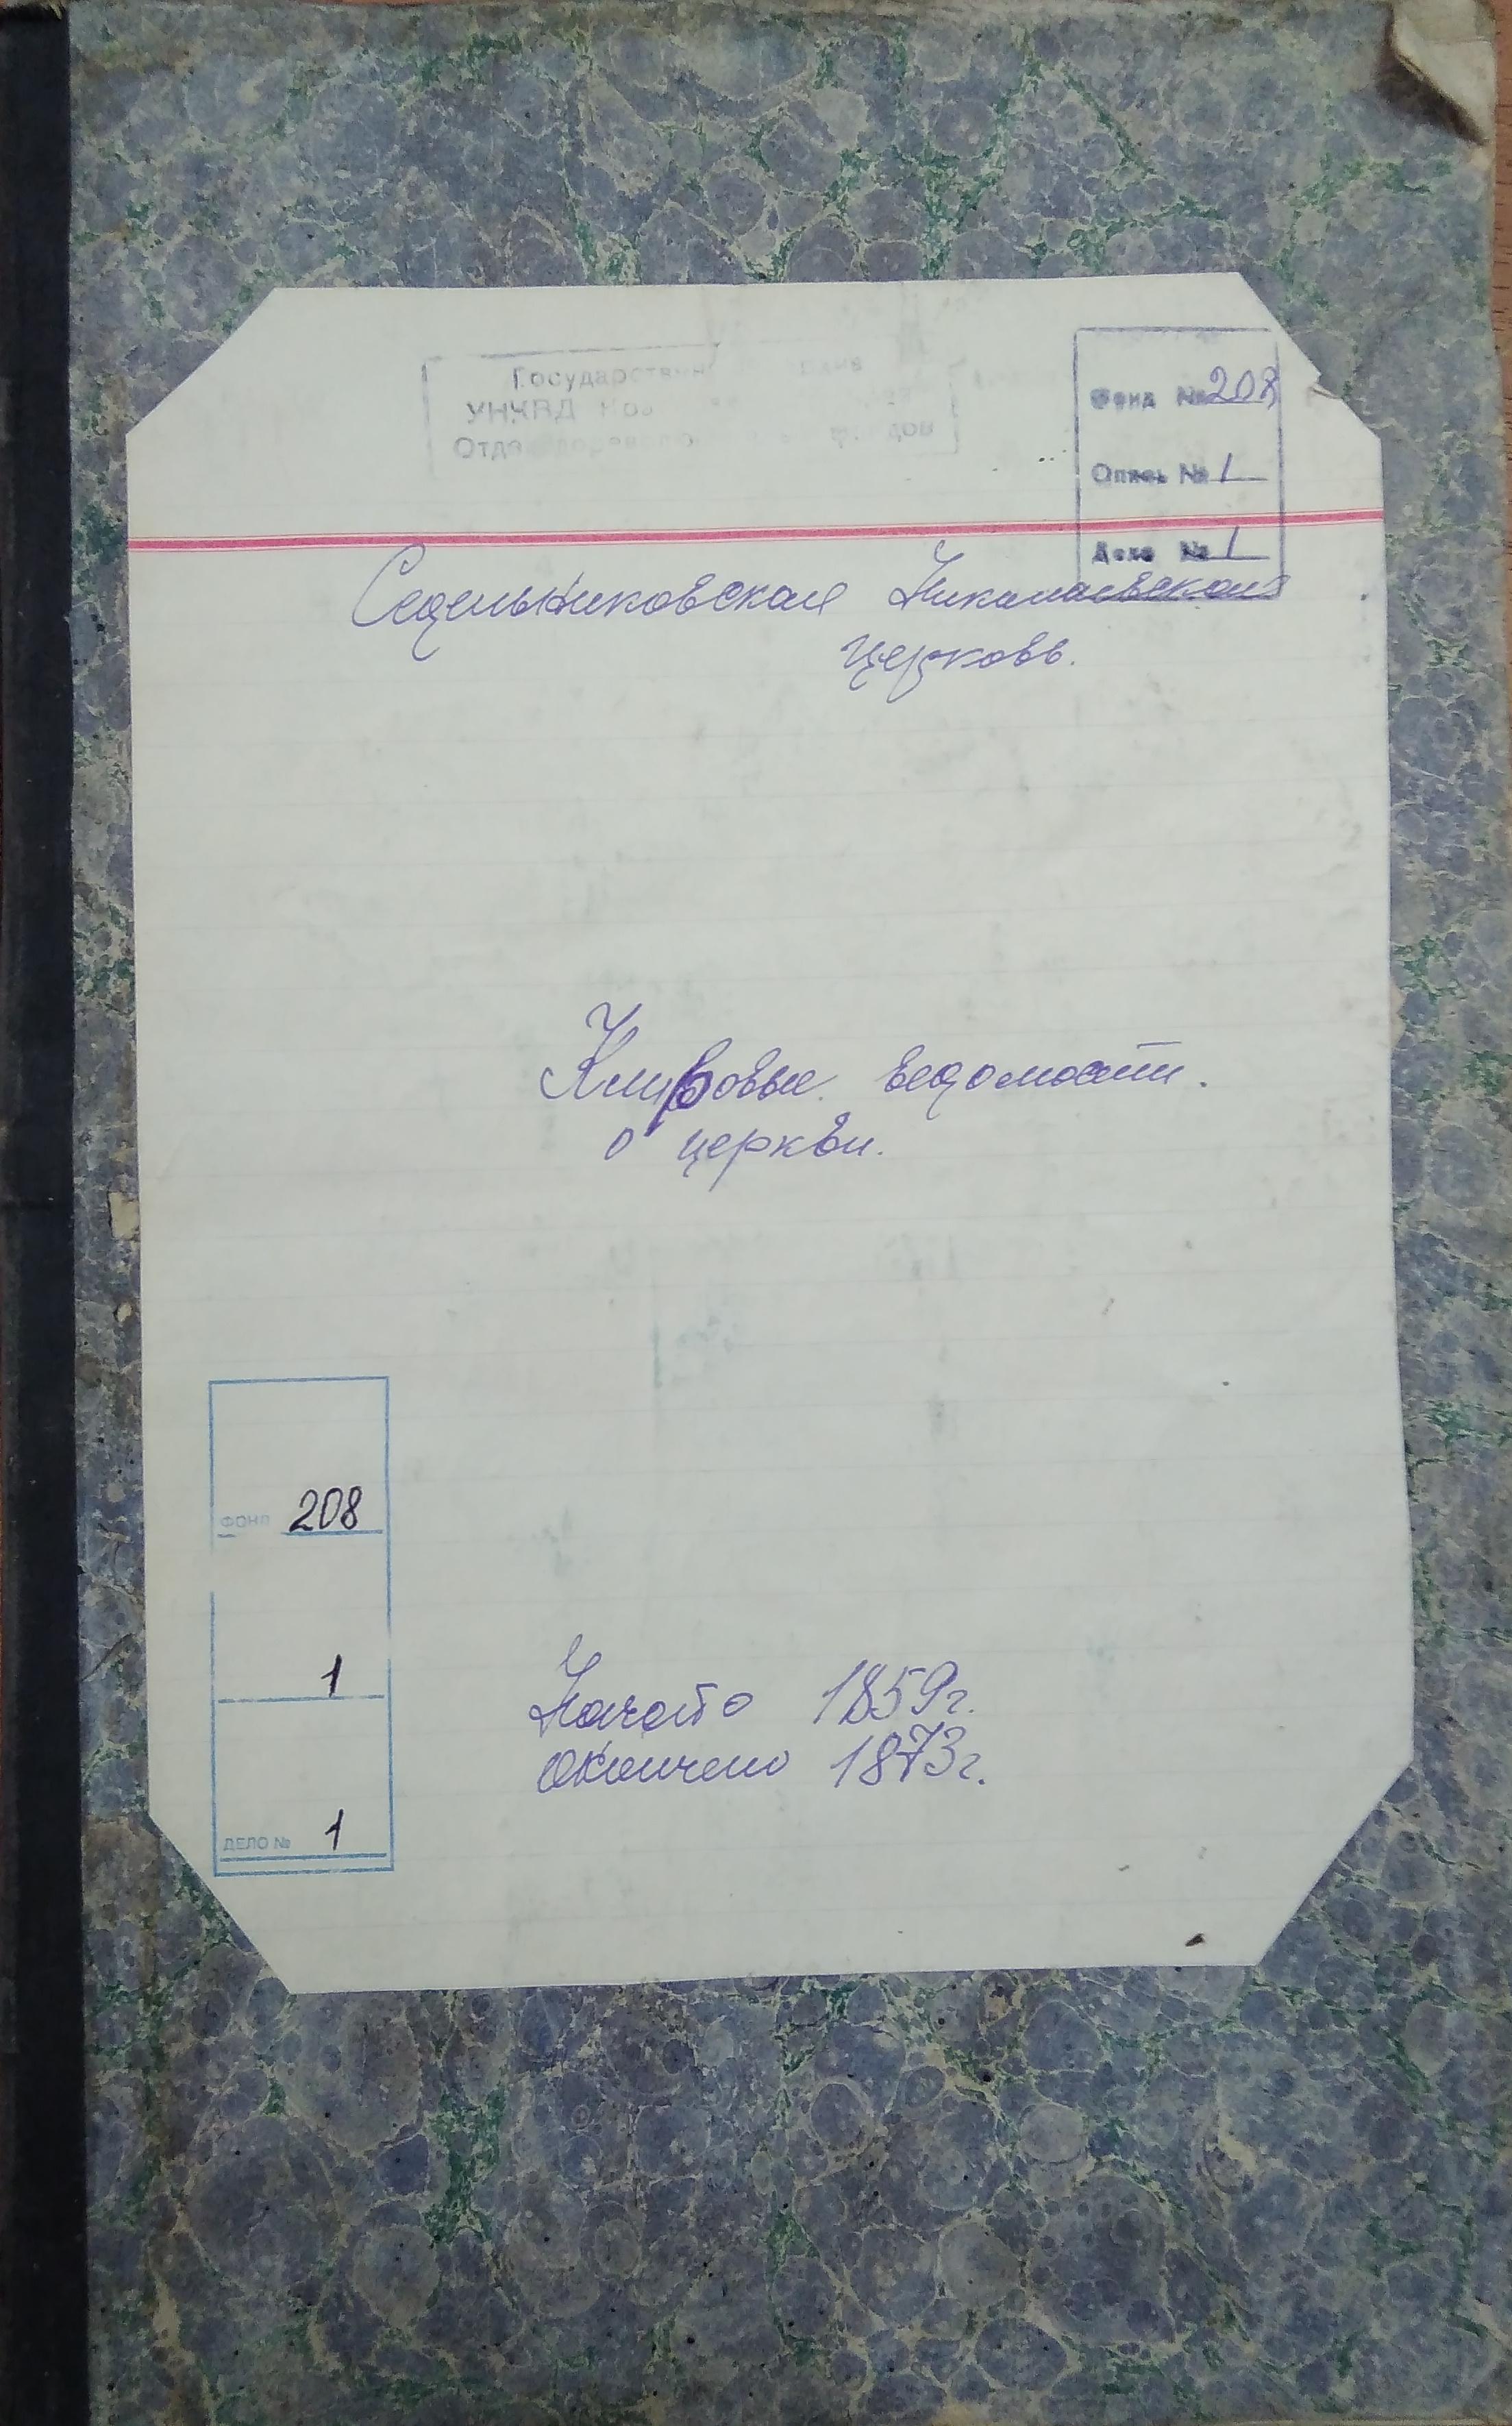 Государствен
УНКВД
фондов
Фонд № 208
Опись № 1
Дело № 1
Седельниковская Николаевская
церковь.
Клировые ведомости.
о церкви.
ФОНД 208
1
ДЕЛО № 1
Начато 1859г.
Окончено 1873г.